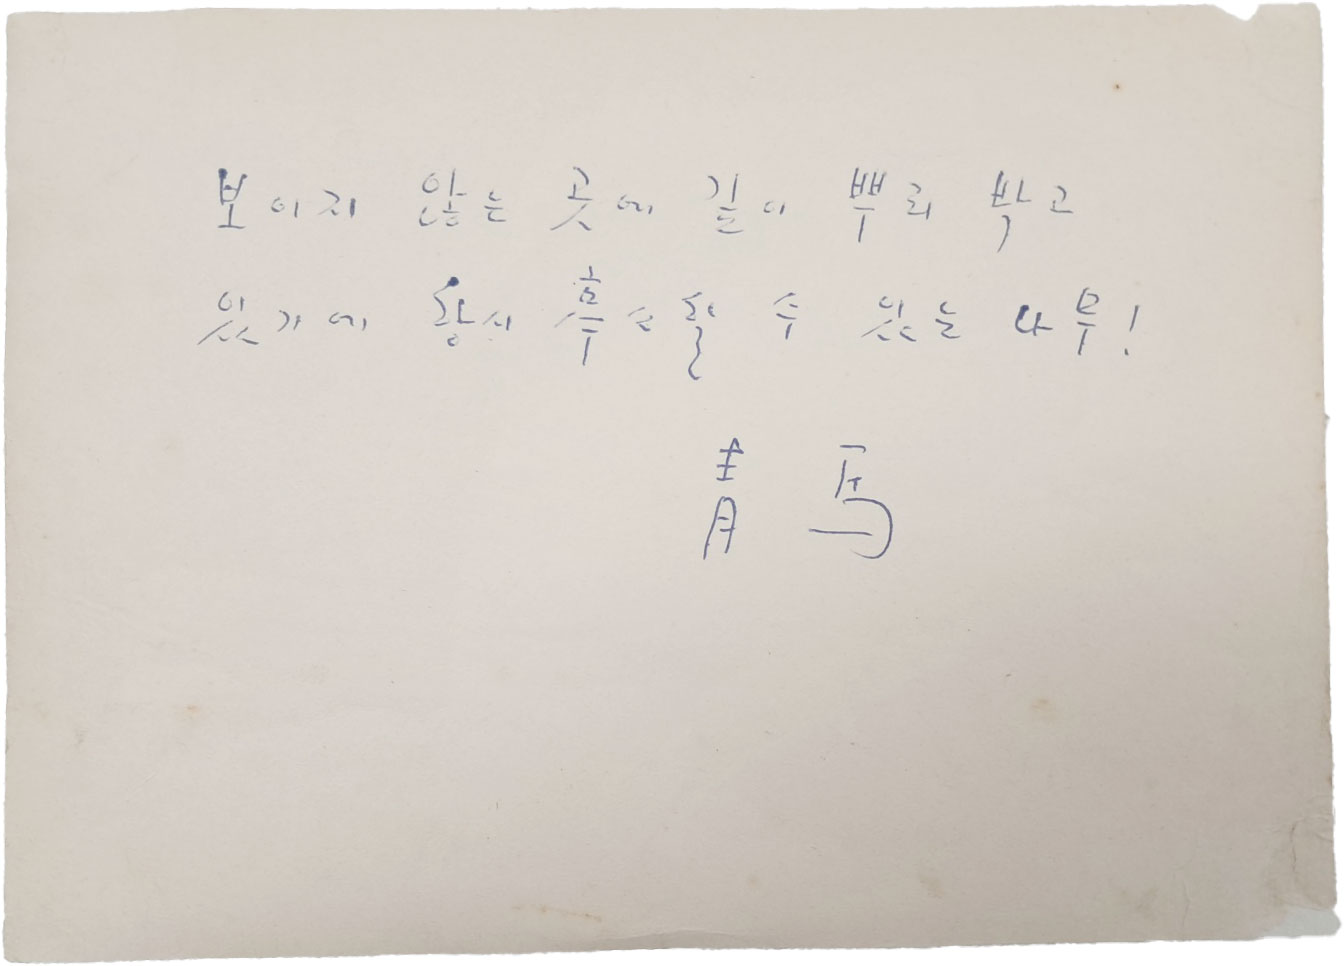 보이지 않는 곳에 깊이 뿌리 박고
있기에 항시 亭々할 수 있는 나무!
靑馬